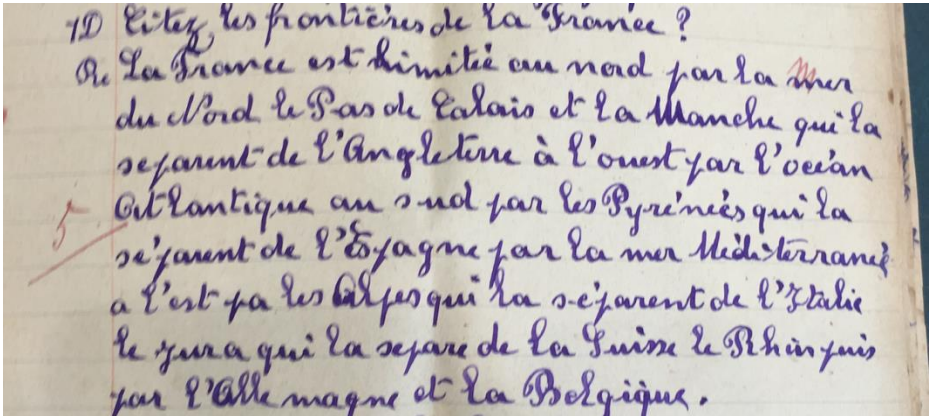 1D Citez les frontières de la France ?
R. La France est limitée au nord par la mer
du Nord le Pas de Calais et la Manche qui la
séparent de l'Angleterre à l'ouest par l'océan
Atlantique au sud par les Pyrénées qui la
séparent de l'Espagne par la mer Méditerranée
a l'est pa les Alpes qui la séparent de l'Italie
le jura qui la sépare de la Suisse le Rhin puis
par l'Allemagne et la Belgique.
5